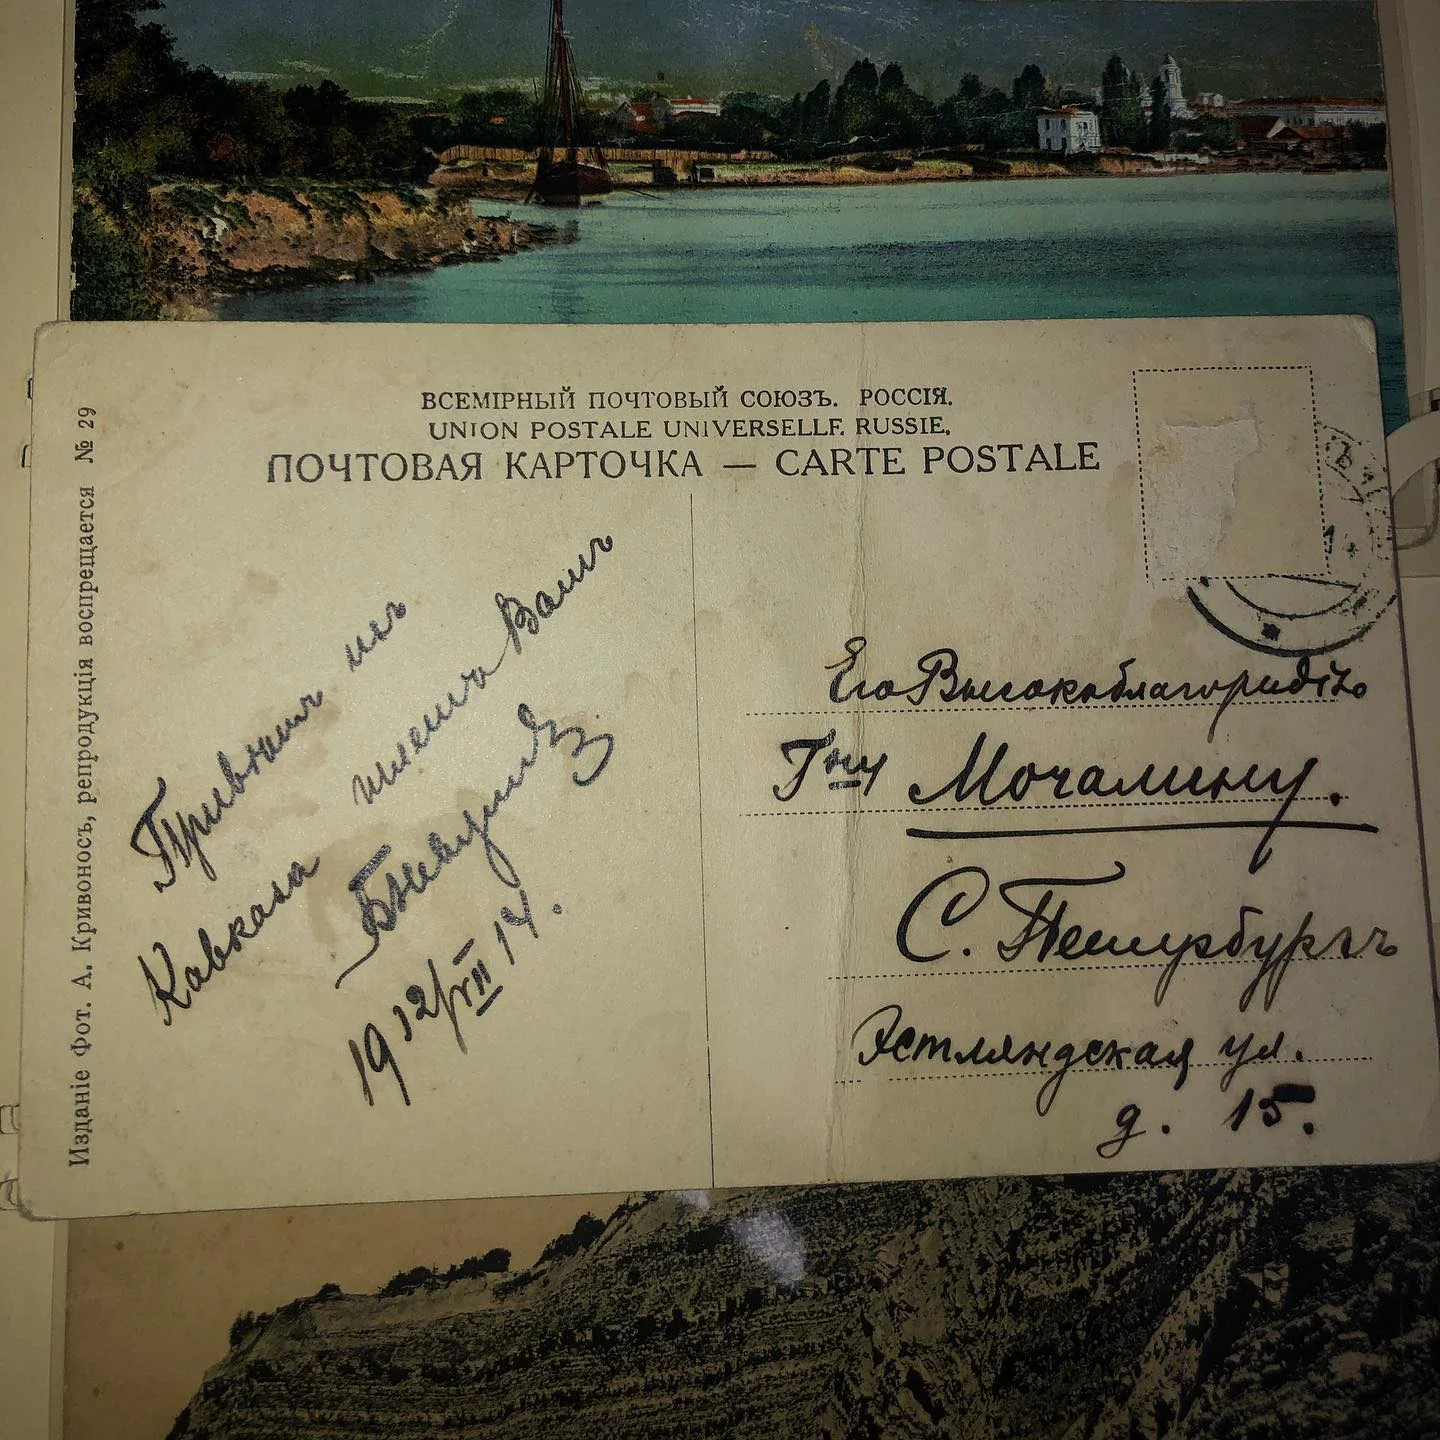 ВСЕМІРНЫЙ ПОЧТОВЫЙ СОЮЗЪ. РОССІЯ.
UNION POSTALE UNIVERSELLE. RUSSIE.
ПОЧТОВАЯ КАРТОЧКА — CARTE POSTALE
Изданіе Фот. А. Кривоносъ, репродукція воспрещается № 29
Кавказа
1912/VII 14.
Его Высокоблагородію
Гну Мочалину.
С. Петербургъ
Эстляндская ул.
д. 15.